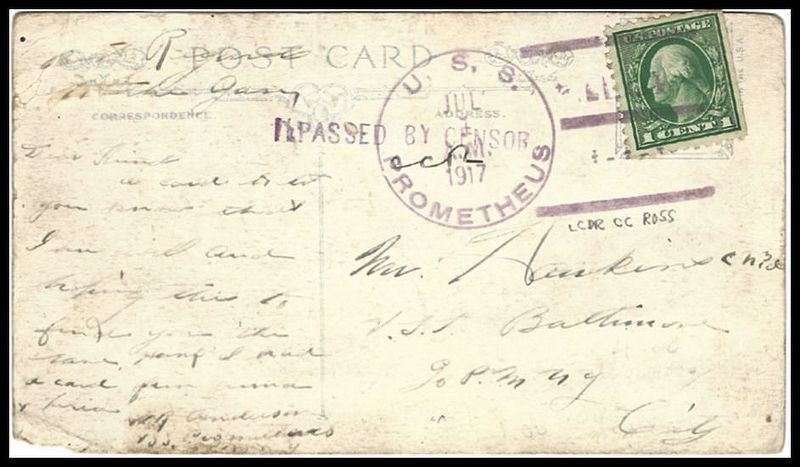 POST CARD
CORRESPONDENCE.
ADDRESS.
U.S. POSTAGE
1 CENTS 1
U. S. S.
JUL
A.M.
1917
PROMETHEUS
PASSED BY CENSOR
CCR
LCDR CC ROSS
Dear Friend
a card to let
you know that
I am well and
hoping this to
find you the
same
a card from
W R Anderson
U.S.S. Prometheus
Mr. Hawkins
U.S.S. Baltimore
℅ P.M. N Y
City